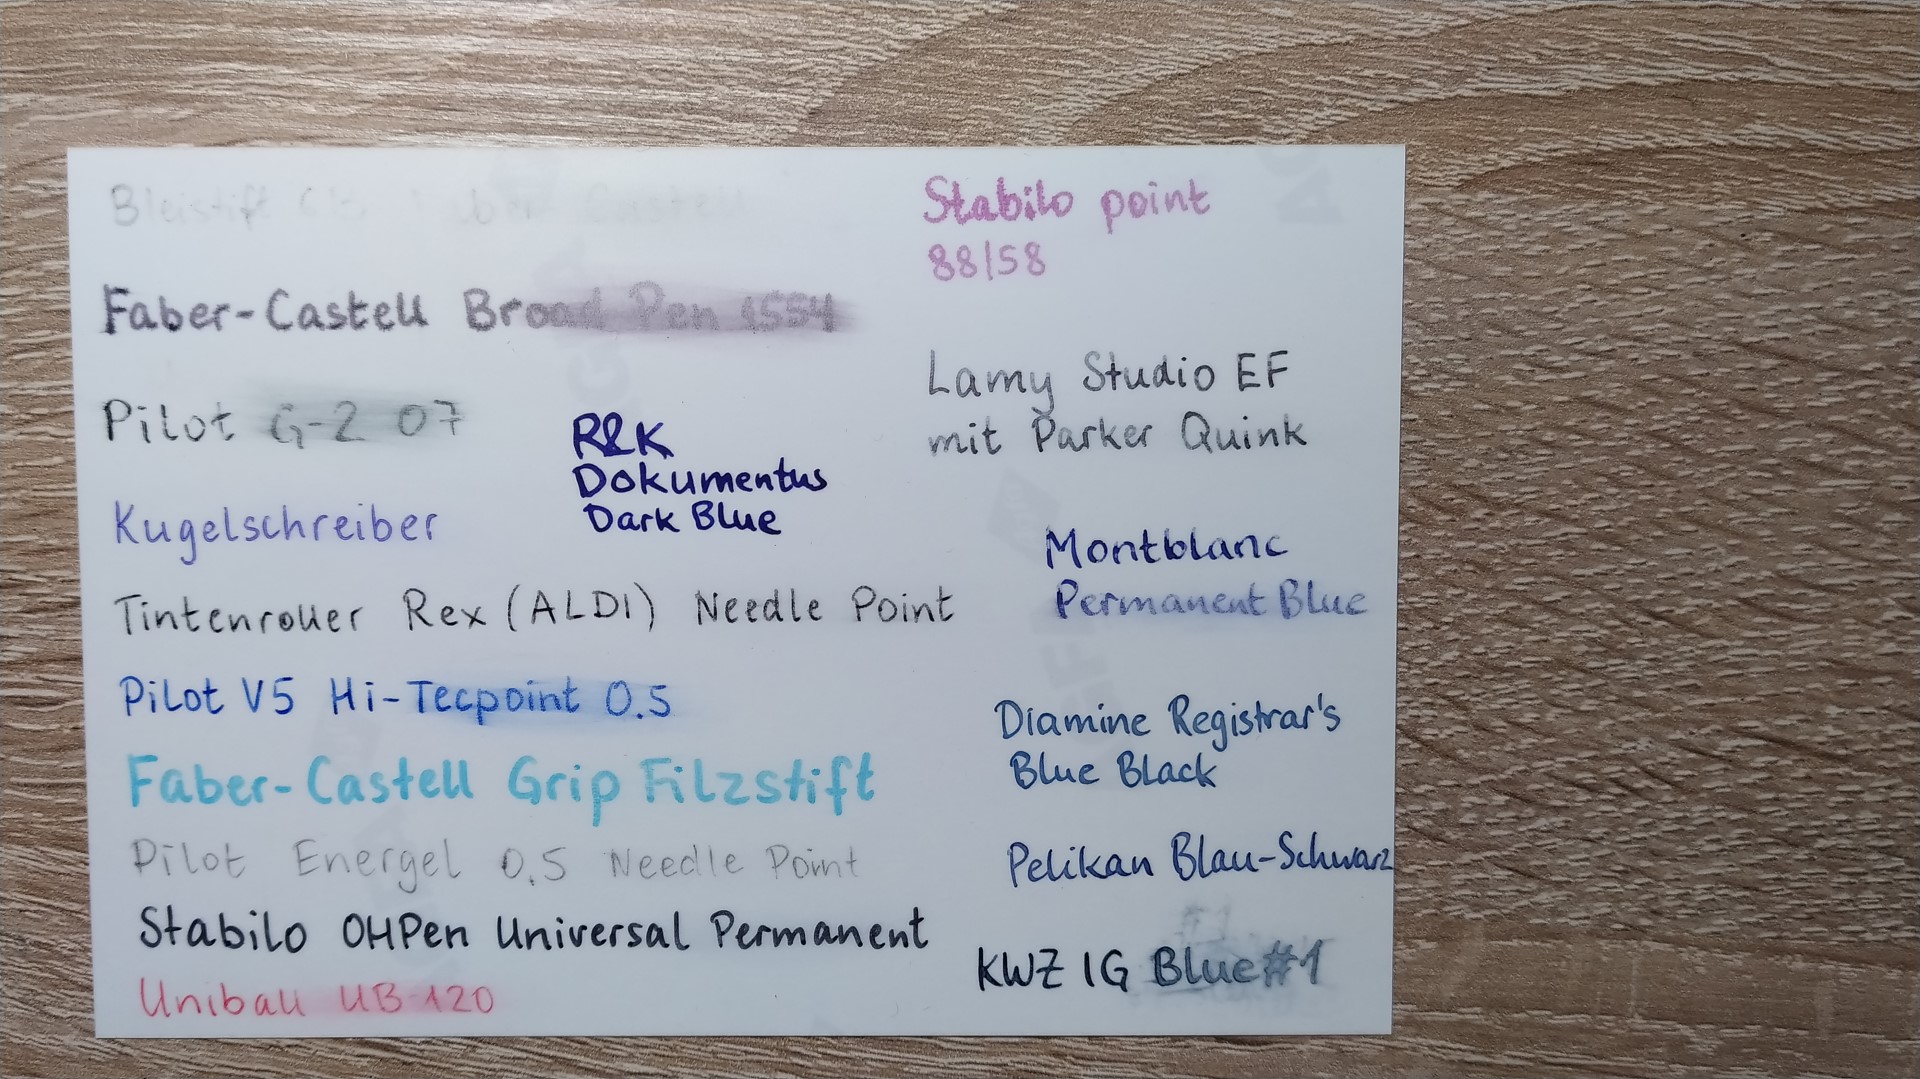 Bleistift Castell
Faber-Castell Broad Pen 1554
Pilot G-2 07
Kugelschreiber
Tintenroller Rex (ALDI) Needle Point
Pilot V5 Hi-Tecpoint 0.5
Faber-Castell Grip Filzstift
Pilot Energel 0.5 Needle Point
Stabilo OHPen Universal Permanent
Uniball UB-120
R&K
Dokumentus
Dark Blue
Stabilo point
88/58
Lamy Studio EF
mit Parker Quink
Montblanc
Permanent Blue
Diamine Registrar's
Blue Black
Pelikan Blau-Schwarz
KWZ IG Blue #1